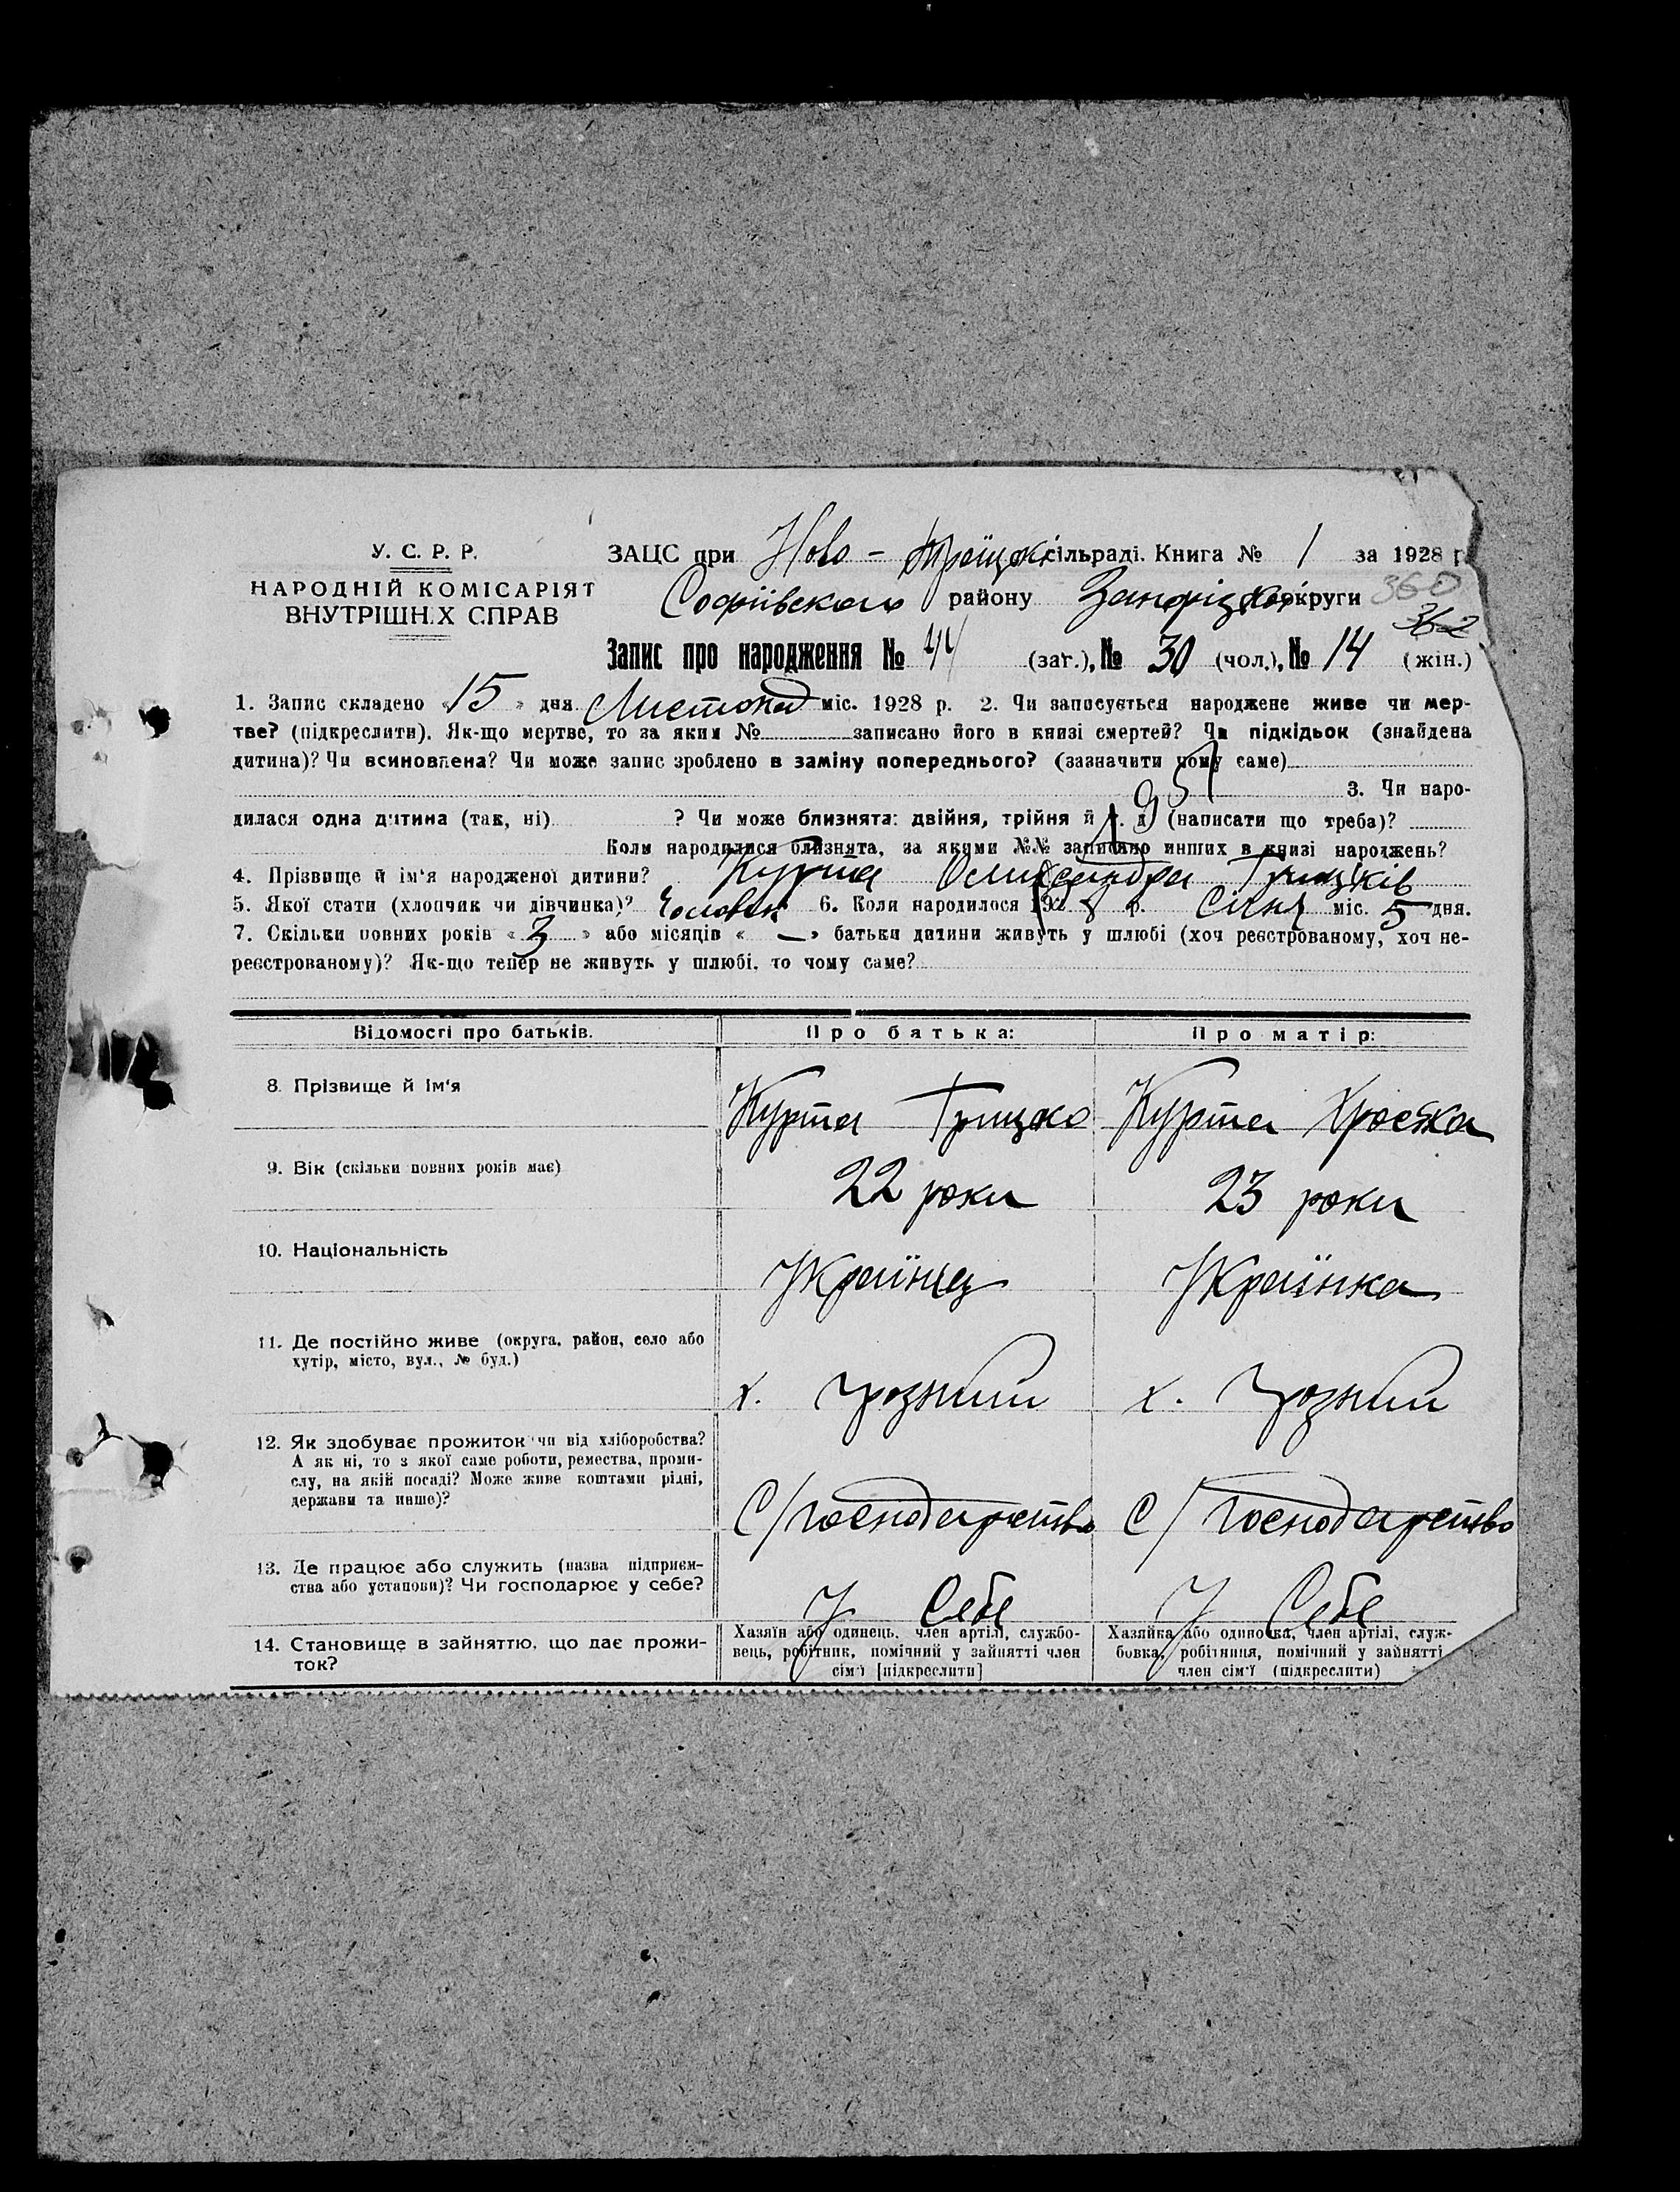 У. С. Р. Р.
НАРОДНІЙ КОМІСАРІЯТ
ВНУТРІШН.Х СПРАВ
ЗАЦС при Ново - Троїцкі сільраді. Книга № 1 за 1928 г
Софіївского району Запорізкої округи 360
362
Запис про народження № 44 (заг.), № 30 (чол.), № 14 (жін.)
1. Запис складено «15» дня Листопад міс. 1928 р. 2. Чи записується народжене живе чи мер-
тве? (підкреслити). Як-що мертве, то за яким № записано його в книзі смертей? Чи підкідьок (знайдена
дитина)? Чи всиновлена? Чи може запис зроблено в заміну попереднього? (зазначити чому саме)
3. Чи наро-
дилася одна дитина (так, ні) ? Чи може близнята: двійня, трійня й т. д. (написати що треба)?
Коли народилися близнята, за якими №№ записано инших в книзі народжень?
4. Прізвище й ім'я народженої дитини? Курта Олександра Грицків
5. Якої стати (хлопчик чи дівчинка)? Чоловік 6. Коли народилося 1928 р. Січня міс. 5 дня.
7. Скільки повних років «3» або місяців «—» батьки дитини живуть у шлюбі (хоч реєстрованому, хоч не-
реєстрованому)? Як-що тепер не живуть у шлюбі, то чому саме?
Відомості про батьків. Про батька: Про матір:
8. Прізвище й ім'я Курта Грицко Курта
9. Вік (скільки повних років має) 22 роки 23 роки
10. Національність Українец Українка
11. Де постійно живе (округа, район, село або
хутір, місто, вул., № буд.)
х. Грозний х. Грозний
12. Як здобуває прожиток чи від хліборобства?
А як ні, то з якої саме роботи, ремества, проми-
слу, на якій посаді? Може живе коштами рідні,
держави та инше)?
С/господарство С/господарство
13. Де працює або служить (назва підприєм-
ства або установи)? Чи господарює у себе?
У Себе У Себе
14. Становище в зайняттю, що дає прожи-
ток?
Хазяїн або одинець, член артілі, службо-
вець, робітник, помічний у зайнятті член
сім'ї [підкреслити]
Хазяйка або одиночка, член артілі, служ-
бовка, робітниця, помічний у зайнятті
член сім'ї (підкреслити)